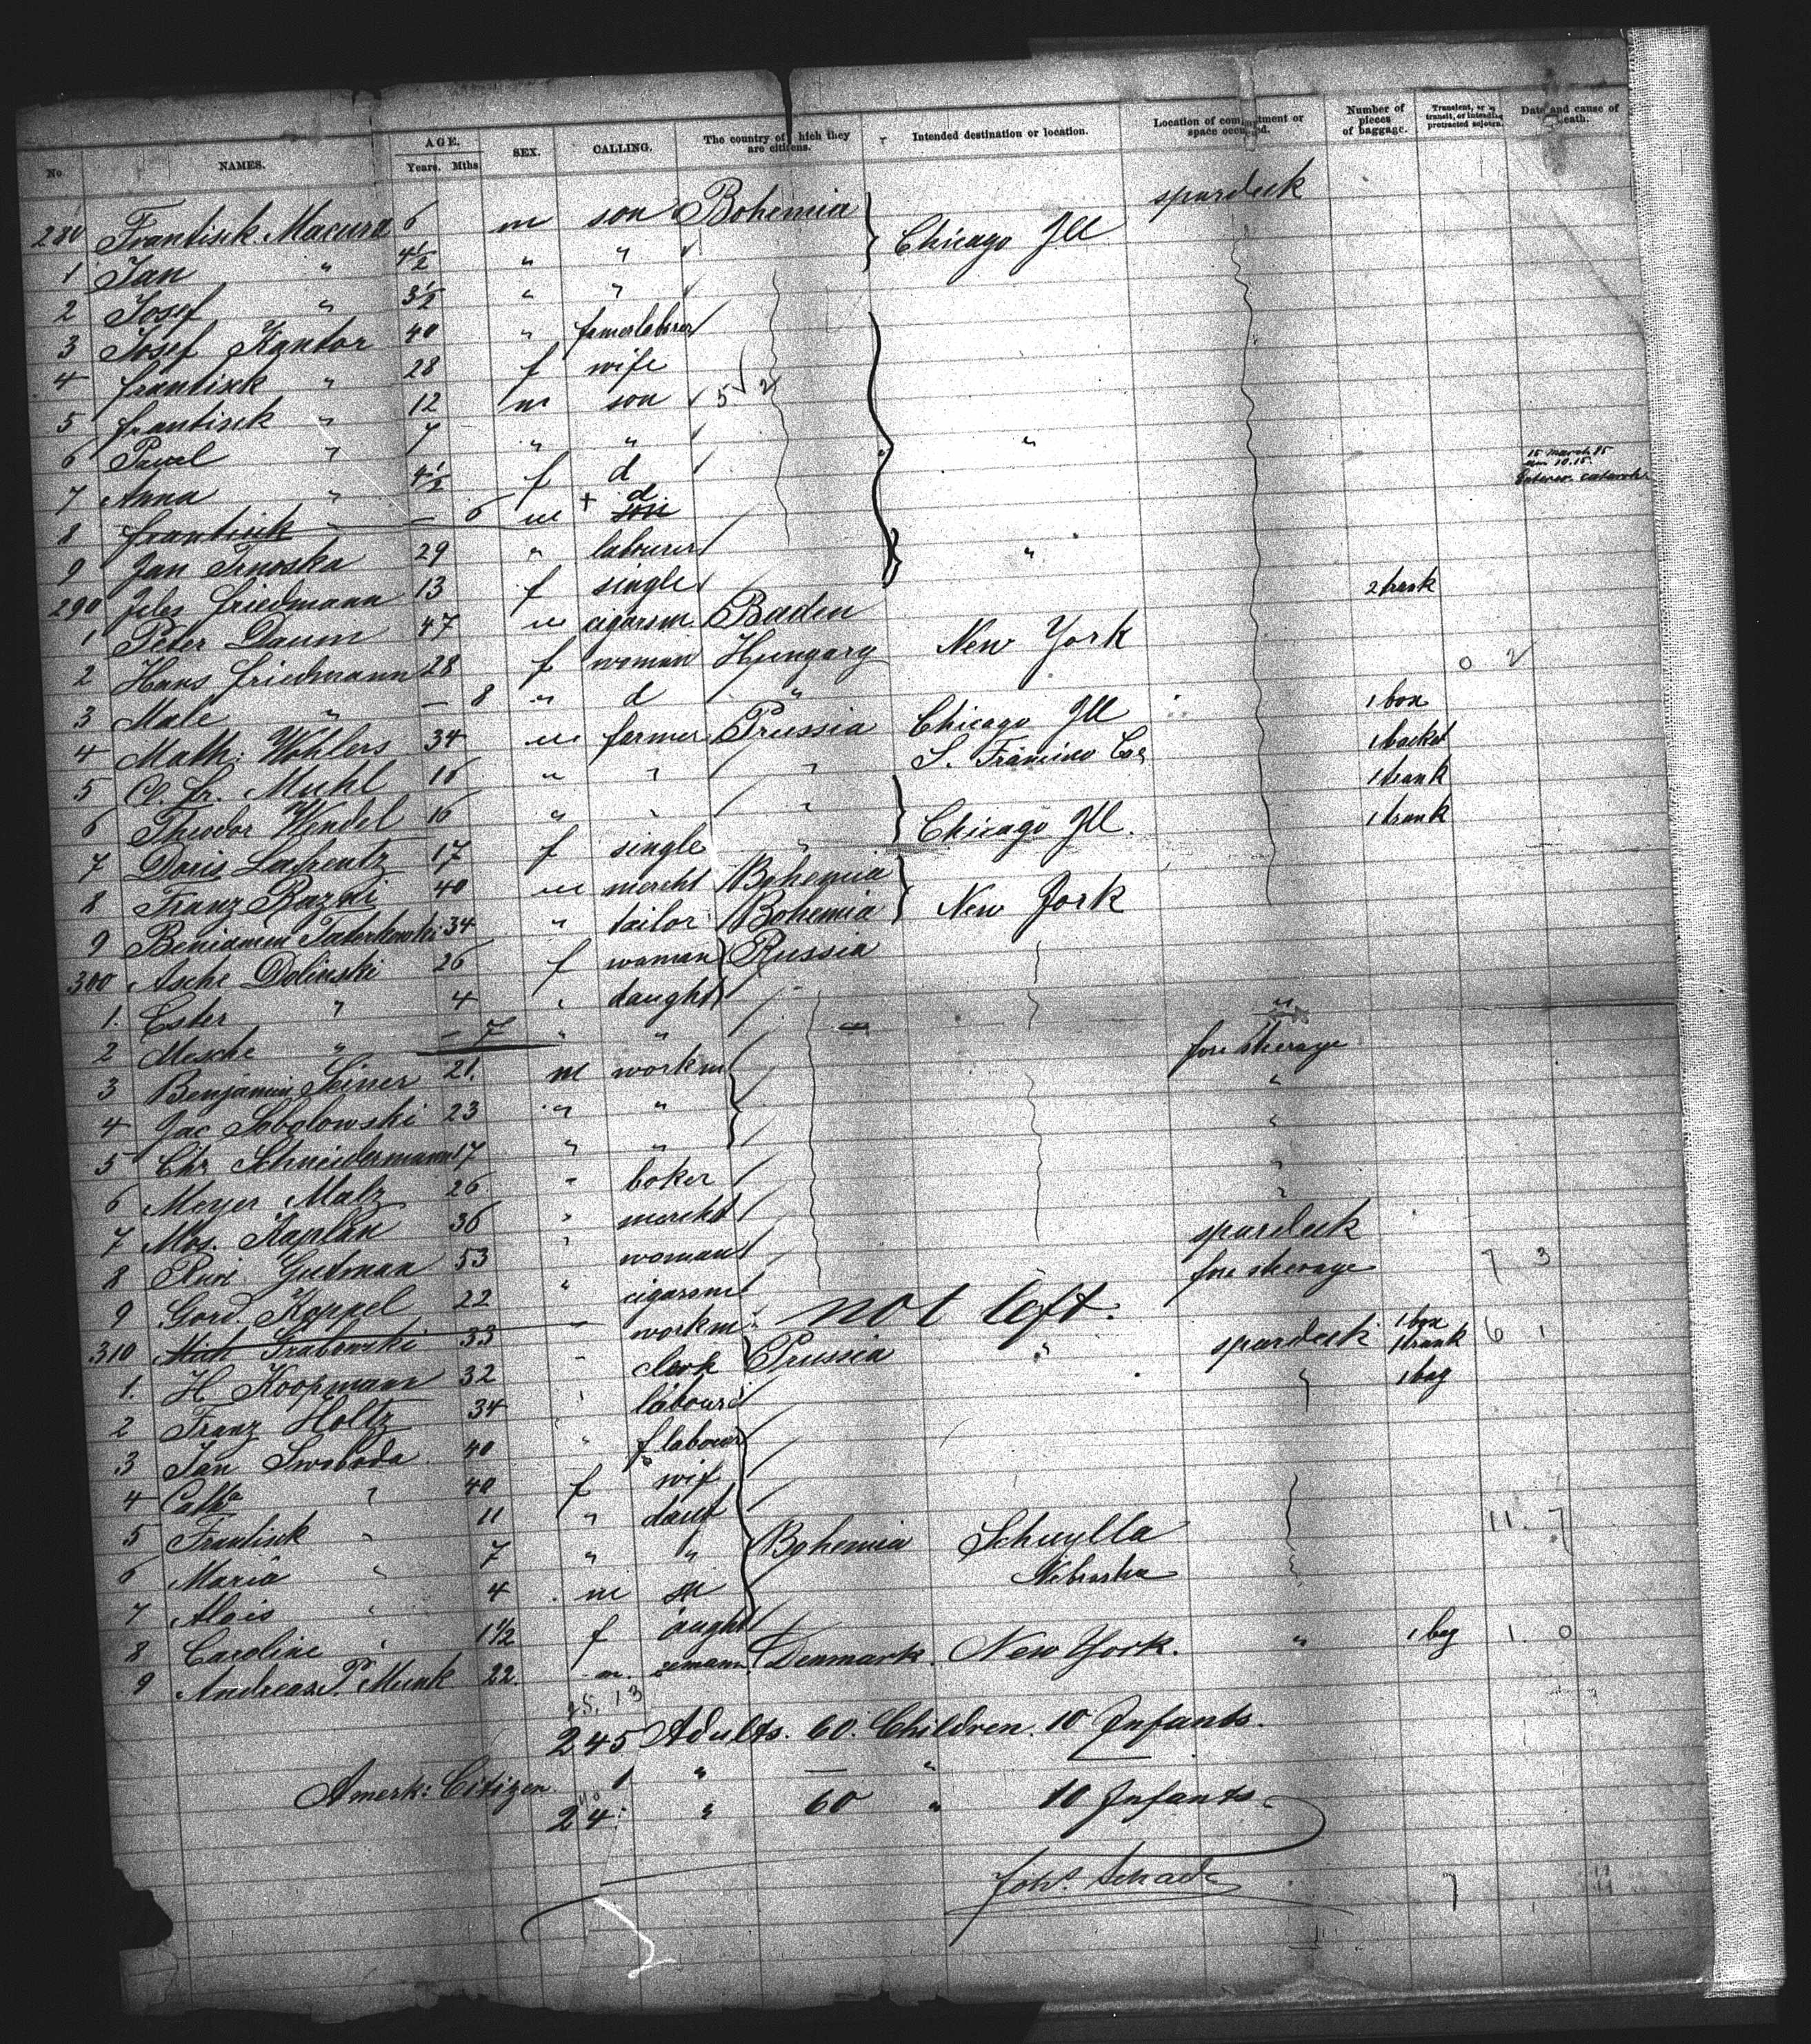 No NAMES. AGE. Years. Mths. SEX. CALLING. The country of which they are citizens. Intended destination or location. Location of compartment or space occupied. Number of pieces of baggage. Transient, or in transit, or intending protracted sojourn. Date and cause of death.
280 Frantisek Macura 6 m son Bohemia Chicago Ill spardeck
1 Jan " 4 1/2 " "
2 Josef " 3 1/2 " "
3 Josef Kantor 40 "
4 frantisek " 28 f wife
5 frantisek " 12 m son 5 2
6 Pavel " 7 " " "
7 Anna " 4 1/2 f d 15 March 85
8 frantisek " — 6 m + d son
9 Jan 29 " labourer "
290 friedmann 13 f single 2 trunk
1 Peter Daum 47 m cigarsm. Baden New York
2 Hans friedmann 28 f woman Hungary 0 2
3 Male " — 8 " d "
4 Math: Wohlers 34 m farmer Prussia Chicago Ill 1 box
5 Cl. Fr. Muhl 16 " " " S. Francisco
6 Theodor Wendel 16 " " " Chicago Ill. 1 trunk
7 Doris Lafrentz 17 f single " 1 trunk
8 Franz 40 m mercht Bohemia New York
9 Beniamin 34 " tailor Bohemia
300 Asche Dolinski 26 f woman Russia
1. Ester " 4 " daught
2 Mesche " — 7 " " "
3 Benjamin 21. m workm fore sterage
4 Jac Sobolowski 23 " " "
5 Chr Schneidermann 17 " " "
6 Meyer Malz 26 " baker "
7 Mos. Kaplan 36 " mercht "
8 Gutman 53 " woman spardeck
9 Gord. Koppel 22 " cigarsm fore sterage 7 3
310 Mich Grabowski 33 — workm not left.
1. H Koopmann 32 " clerk Prussia " spardeck 1 box 1 trunk 6 1
2 Franz Holtz 34 " labour " 1 bag
3 Jan Swoboda 40 " f labour
4 Catha " 40 f wif
5 Frantisek " 11 " daut
6 Maria " 7 " " Bohemia Schuylla Nebraska 11. 7
7 Alois " 4 m
8 Caroline " 1 1/2 f aught
9 Andreas P. Munk 22. m. Denmark. New York. " 1 bag 1. 0
25. 13
245 Adults. 60. Children. 10 Infants.
Amerk: Citizen 1 " — "
24 " 60 " 10 Infants
Johs. Schade